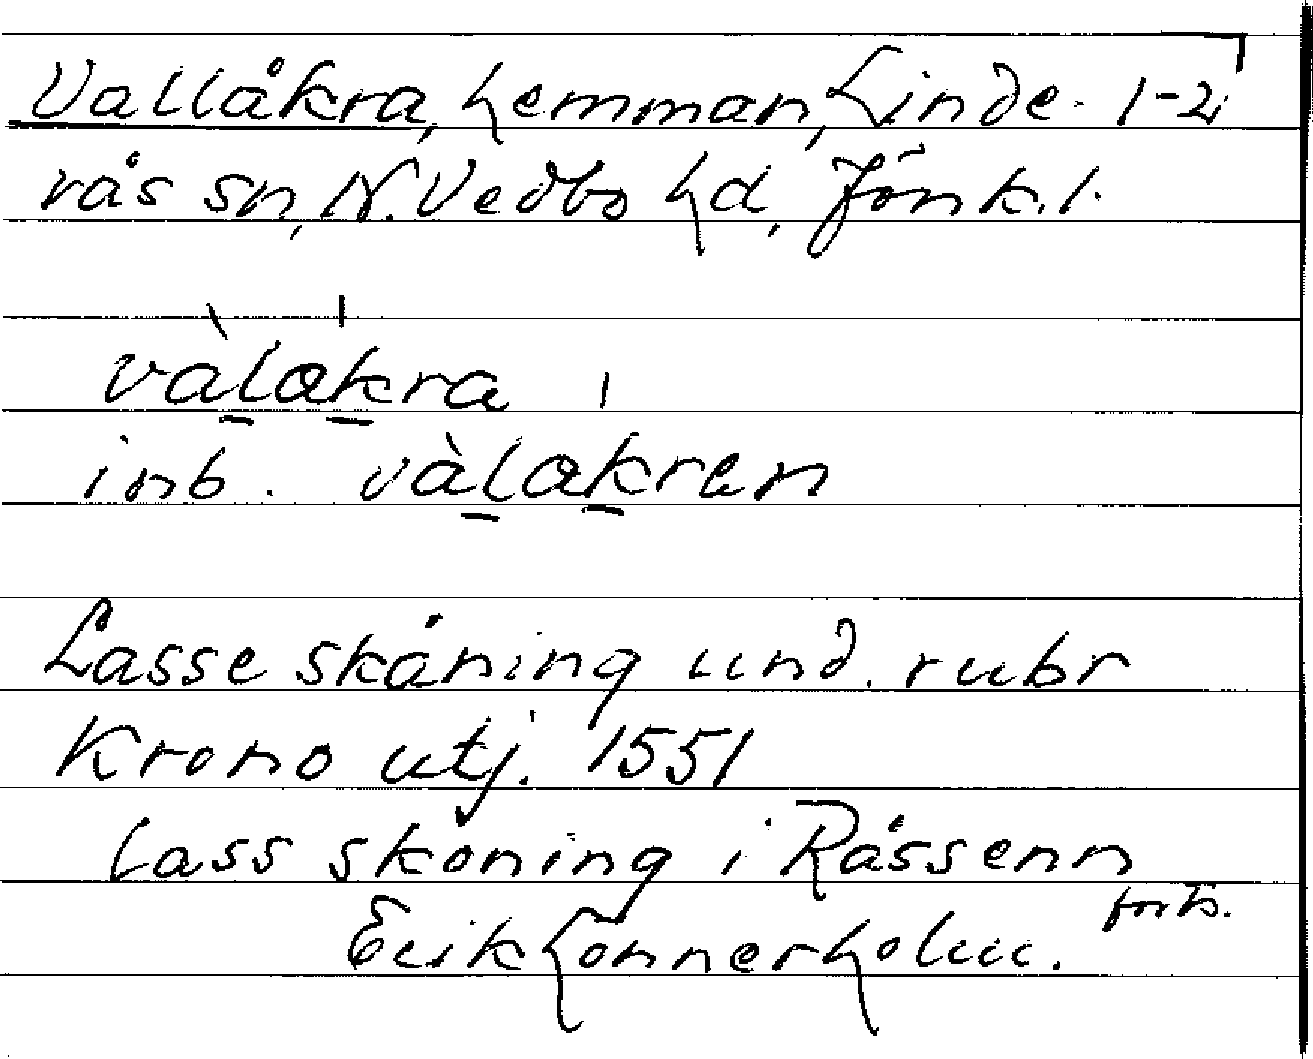 Vallåkra, hemman, Linde- 1-2
rås sn, N. Vedbo hd, Jönk.l.
vàlakra ,
inb. vàlakren
Lasse skåning und. rubr
Krono utj. 1551
lass skoning i Råssenn
forts.
Erik Lönnerholm.